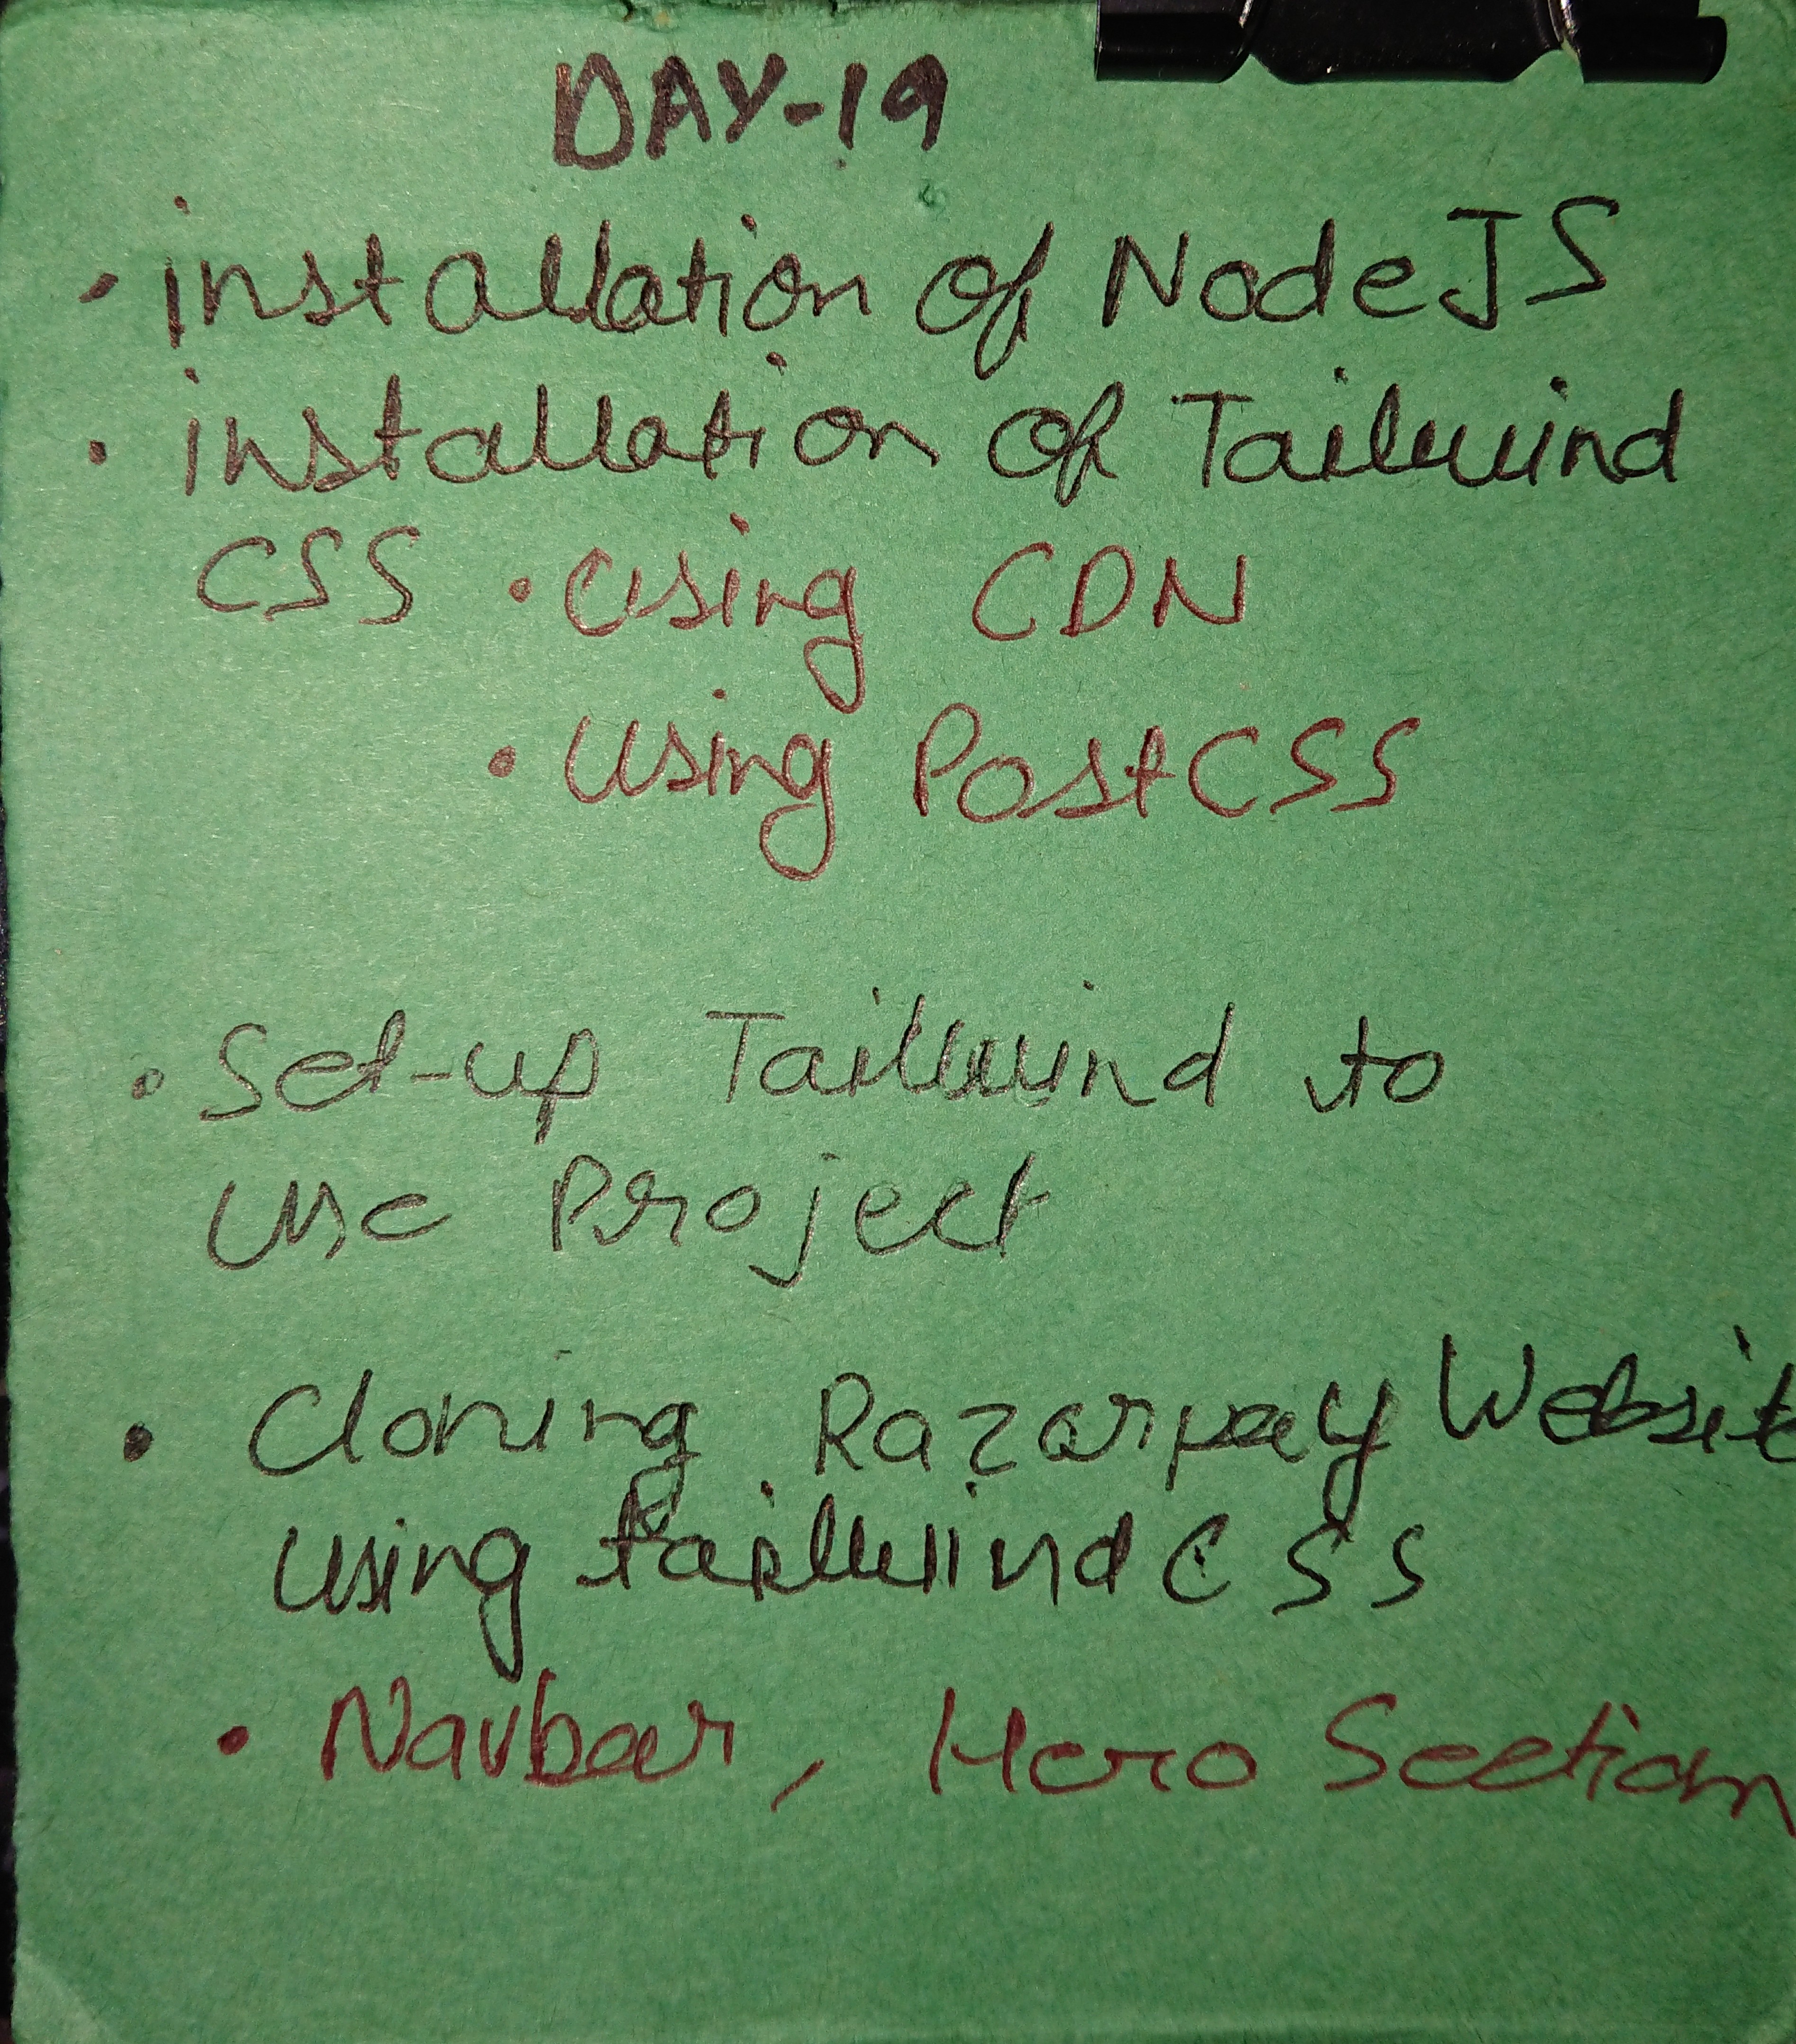 DAY-19
• installation of NodeJS
• installation of Tailwind
CSS • Using CDN
• Using PostCSS
• Set-up Tailwind to
use Project
• Cloning Razarpay Website
using tailwind CSS
• Navbar, Hero Section